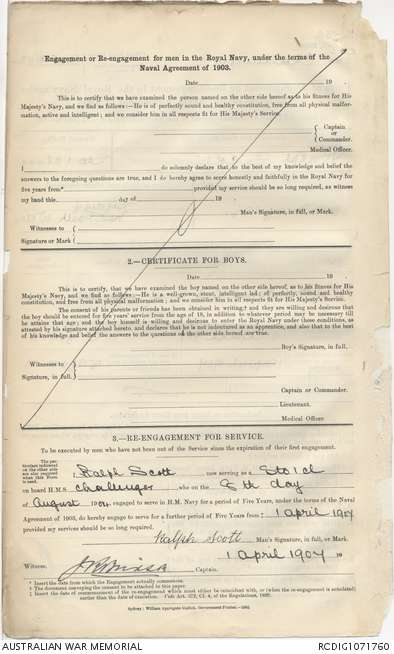 Engagement or Re-engagement for men in the Royal Navy, under the terms of the
Naval Agreement of 1903.
Date 19
This is to certify that we have examined the person named on the other side hereof as to his fitness for His
Majesty's Navy, and we find as follows:—He is of perfectly sound and healthy constitution, free from all physical malfor-
mation, active and intelligent; and we consider him in all respects fit for His Majesty's Service.
Captain
or
Commander.
Medical Officer.
do solemnly declare that to the best of my knowledge and belief the
answers to the foregoing questions are true, and I do hereby agree to serve honestly and faithfully in the Royal Navy for
five years from* provided my service should be so long required, as witness
my hand this day of 19
Man's Signature, in full, or Mark.
Witnesses to
Signature or Mark
2.—CERTIFICATE FOR BOYS.
Date 19
This is to certify, that we have examined the boy named on the other side hereof, as to his fitness for His
Majesty's Navy, and we find as follows:—He is a well-grown, stout, intelligent lad; of perfectly sound and healthy
constitution, and free from all physical malformation; and we consider him in all respects fit for His Majesty's Service.
The consent of his parents or friends has been obtained in writing,† and they are willing and desirous that
the boy should be entered for five years' service from the age of 18, in addition to whatever period may be necessary till
he attains that age; and the boy himself is willing and desirous to enter the Royal Navy under these conditions, as
attested by his signature attached hereto, and declares that he is not indentured as an apprentice, and also that to the best
of his knowledge and belief the answers to the questions on the other side hereof are true.
Boy's Signature, in full.
Witnesses to
Signature, in full,
Captain or Commander.
Lieutenant.
Medical Officer.
3.—RE-ENGAGEMENT FOR SERVICE.
To be executed by men who have not been out of the Service since the expiration of their first engagement.
I, Ralph Scott now serving as a Sto 1 cl
on board H.M.S. Challenger who on the 8th day
of August 1904 engaged to serve in H.M. Navy for a period of Five Years, under the terms of the Naval
Agreement of 1903, do hereby engage to serve for a further period of Five Years from ‡ 1 April 1907
provided my services should be so long required.
Ralph Scott Man's Signature, in full, or Mark.
1 April 1907 19
Witness, Captain.
* Insert the date from which the Engagement actually commences.
† The document conveying the consent to be attached to this paper.
Sydney: William Applegate Gullick, Government Printer.
AUSTRALIAN WAR MEMORIAL
RCDIG1071760